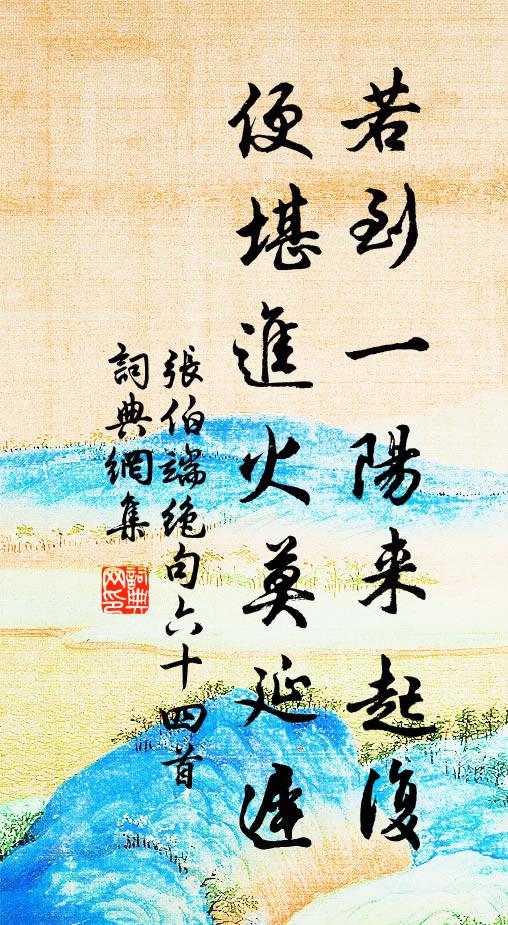 若到一陽来起復
便堪進火莫延遲
張伯端絶句六十四首
詞典網集
詞典網印